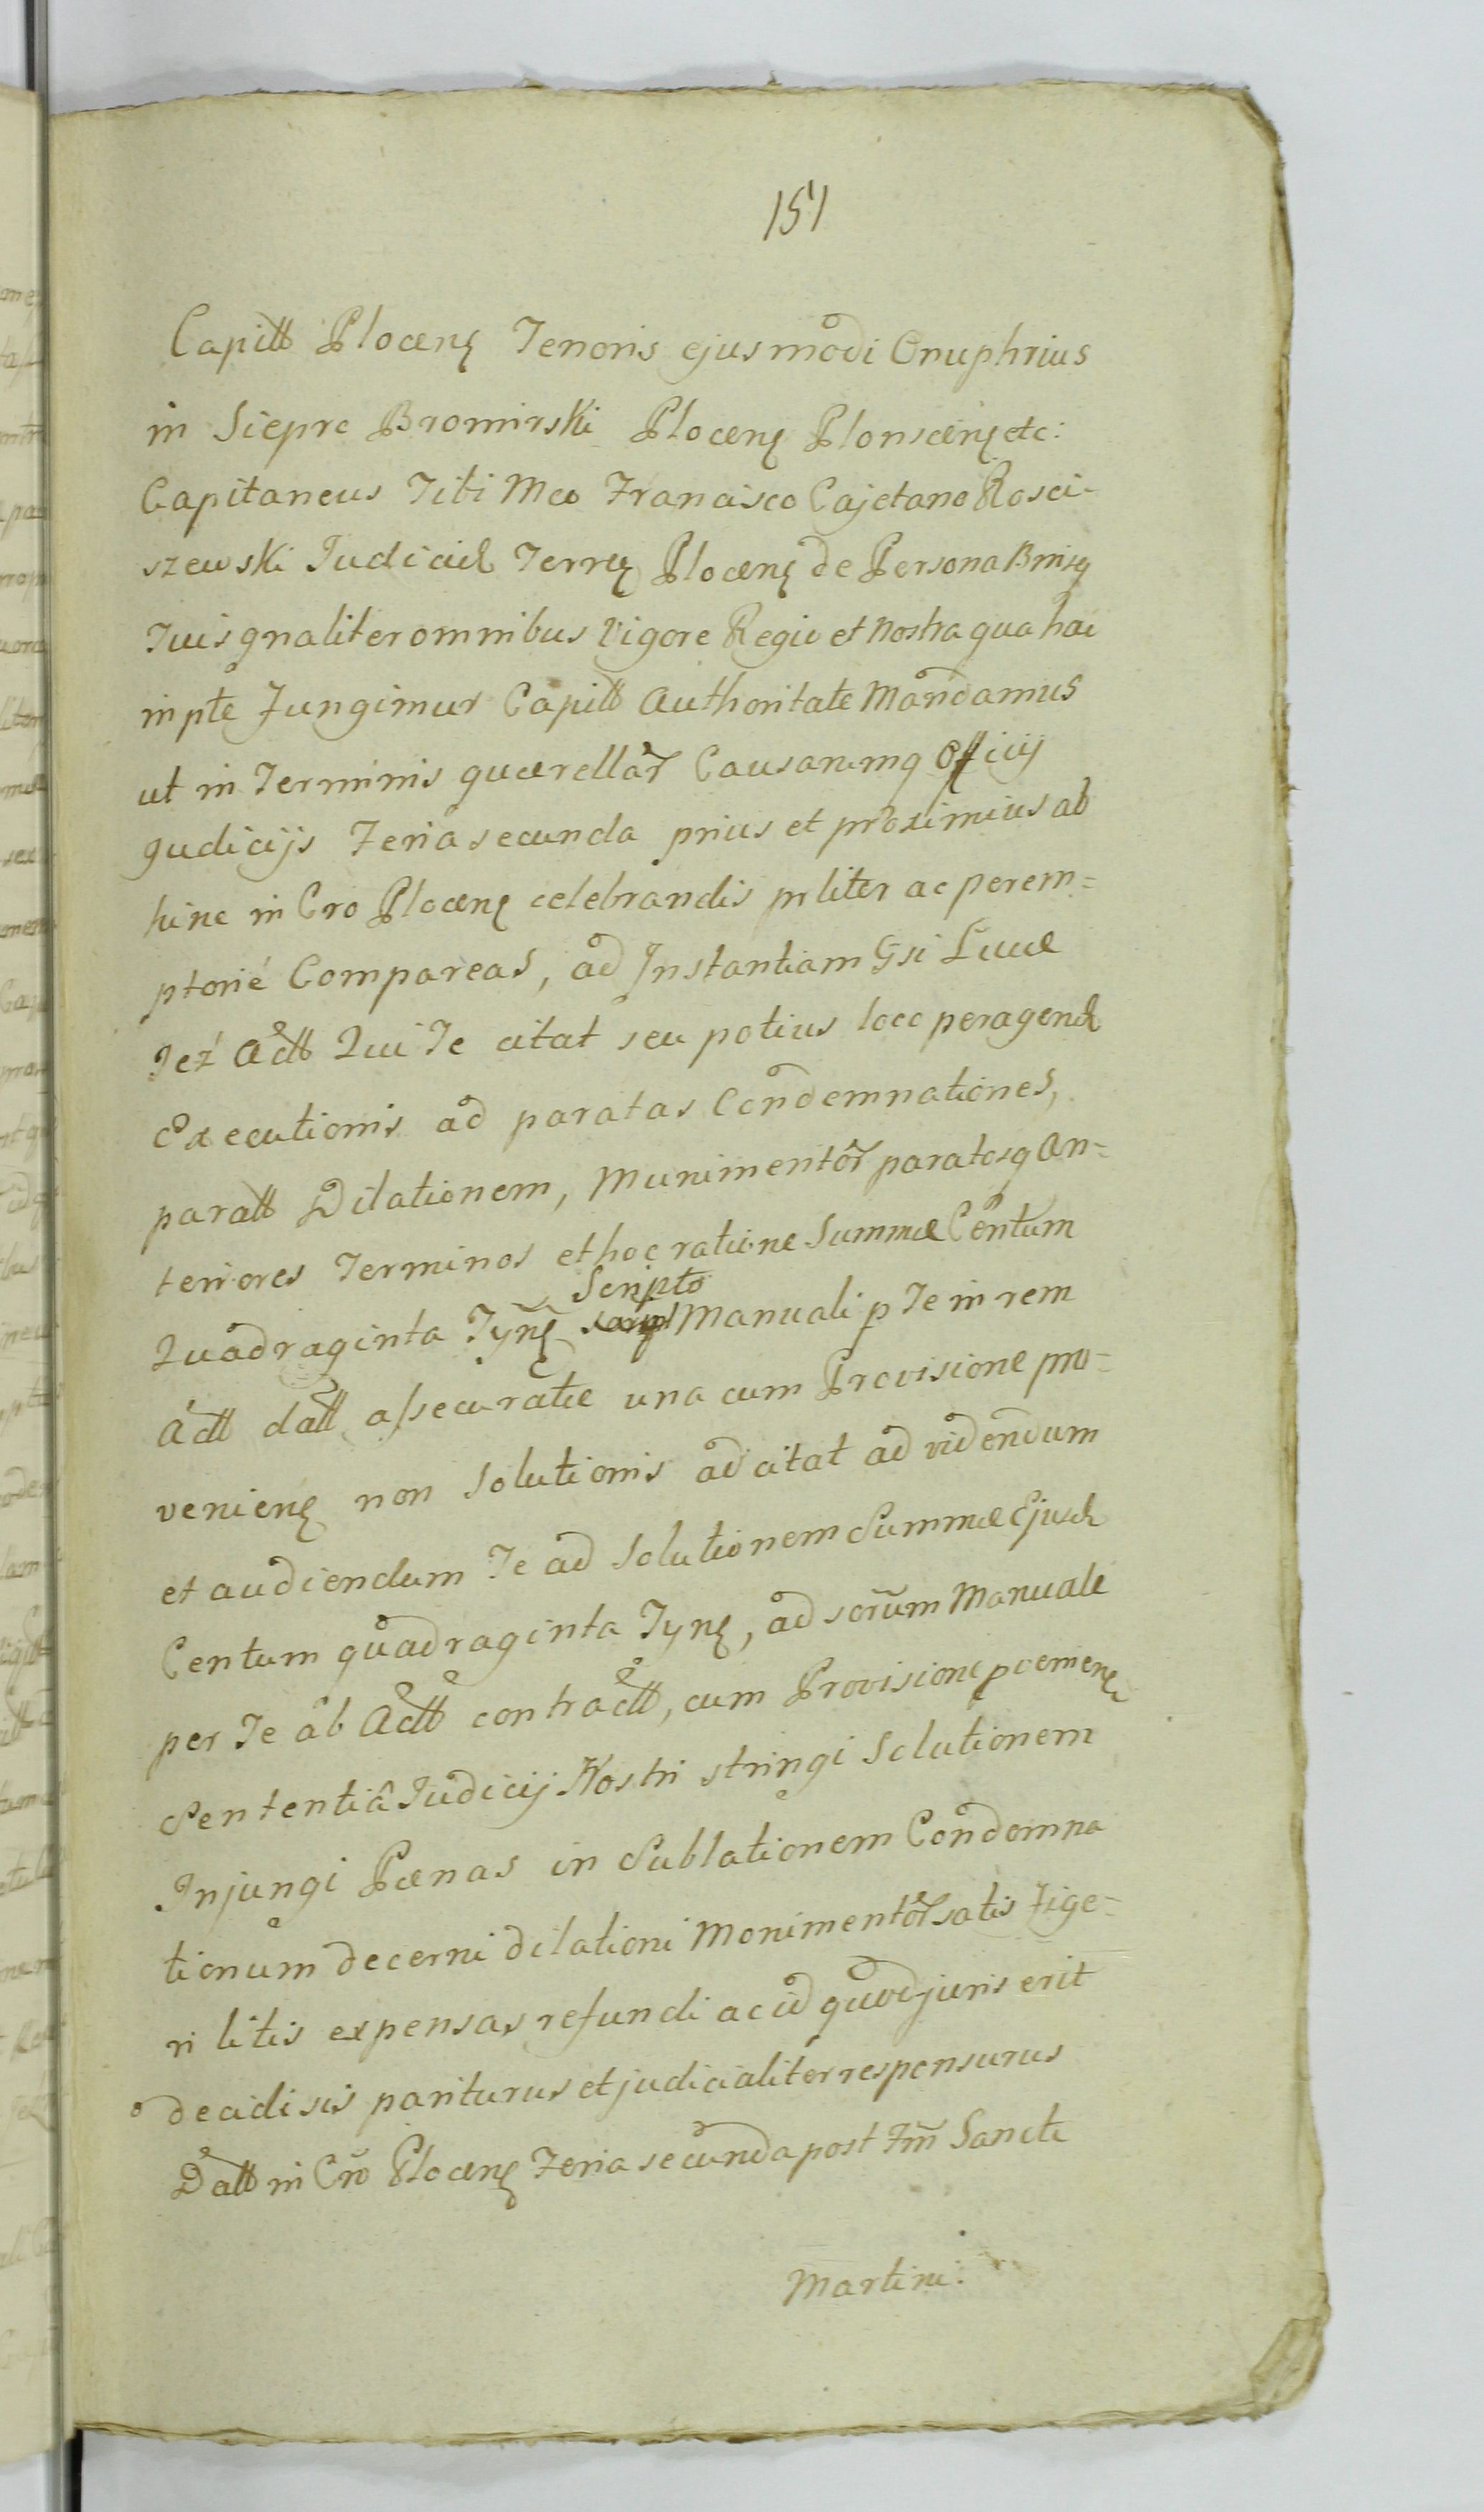 151
Capitt Plocens Tenoris ejusmodi Onuphrius
in Siepre Bromirski Plocens Plonscens etc:
Capitaneus Tibi Mco Francisco Cajetano Rosci-
szewski Judiciali Terrę Plocens de Persona Bnisq
Tuis gnaliter omnibus Vigore Regio et Nostra qua hac
in pte Fungimur Capitt Authoritate Mandamus
ut in Terminis quaerellar Causarumq Officij
Judicijs Feria secunda prius et proximius ab
hinc in Cro Plocens celebrandis prliter ac perem=
ptorié Compareas, ad Instantiam Gsi Lucae
Jeż Actt Qui Te citat seu potius loco peragend
Executionis ad paratas Condemnationes,
paratt Dilationem, Munimentor paratosq An=
teriores Terminos et hoc ratione Summae Centum
Quadraginta Tyns Scripto Manuali p Te in rem
Actt datt assecuratae una cum Provisione pro=
veniens non Solutionis adcitat ad videndum
et audiendum Te ad Solutionem Summae Ejusd
Centum quadraginta Tyns, ad scrum Manuale
per Te ab Actt contractt, cum Provisione
Sententiâ Judicij Nostri stringi Solutionem
Injungi Paenas in Sublationem Condemna
tionum decerni dilationi Monimentor satis Fige-
ri litis expensas refundi ac id quod juris erit
decidi sis pariturus et judicialiter responsurus
Datt in Cro Plocens Feria secunda post Fm Sancti
Martini.